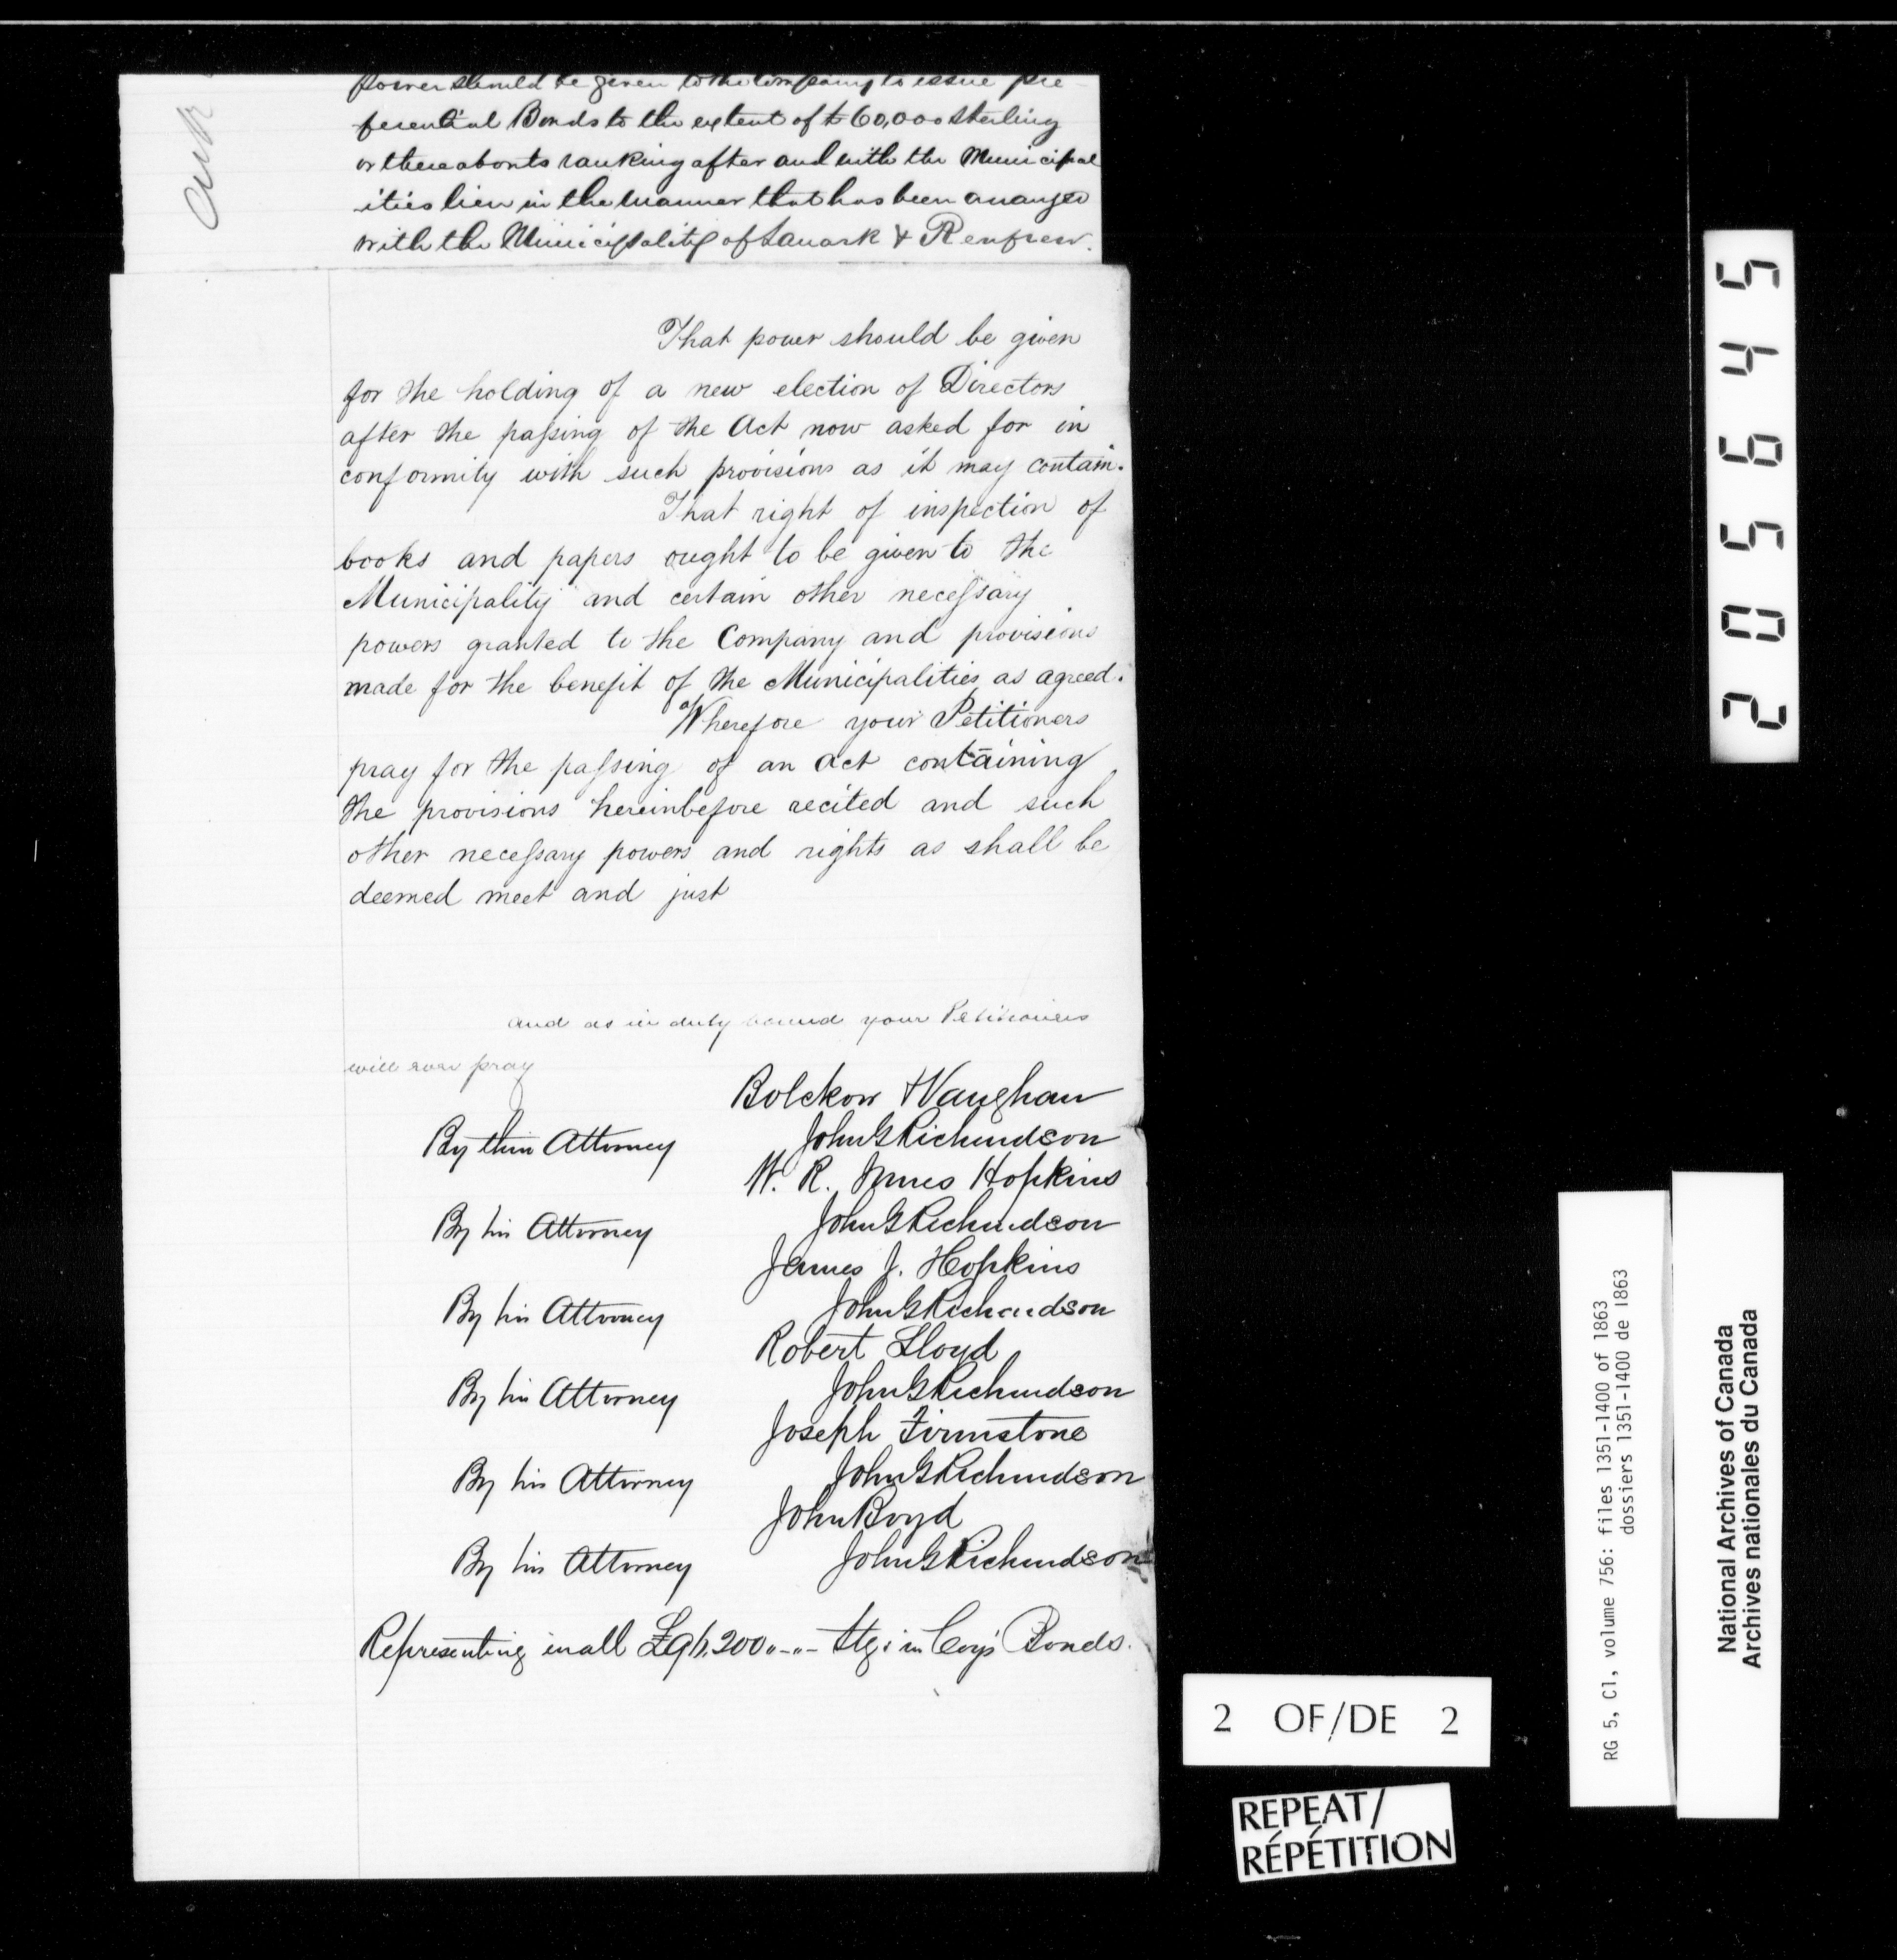 power should be given to the Company to issue pre
ferential Bonds to the extent of £60,000 Sterling
or thereabouts ranking after and with the Municipal
ities lien in the manner that has been arranged
with the Municipality of Lanark & Renfrew.
That power should be given
for the holding of a new election of Directors
after the passing of the Act now asked for in
conformity with such provisions as it may contain.
That right of inspection of
books and papers ought to be given to the
Municipality and certain other necessary
powers granted to the Company and provisions
made for the benefit of the Municipalities as agreed.
Wherefore your Petitioners
pray for the passing of an act containing
the provisions hereinbefore recited and such
other necessary powers and rights as shall be
deemed meet and just
and as in duty bound your Petitioners
will ever pray
Bolckow & Vaughan
By their Attorney John G Richardson
W. R. Innes Hopkins
By his Attorney John G Richardson
James I. Hopkins
By his Attorney John G Richardson
Robert Lloyd
By his Attorney John G Richardson
Joseph Firmstone
By his Attorney John G Richardson
John Boyd
By his Attorney John G Richardson
Representing in all Stg. in Coy's Bonds.
205645
RG 5, C1, volume 756: files 1351-1400 of 1863
dossiers 1351-1400 de 1863
National Archives of Canada
Archives nationales du Canada
2 OF/DE 2
REPEAT/
RÉPÉTITION